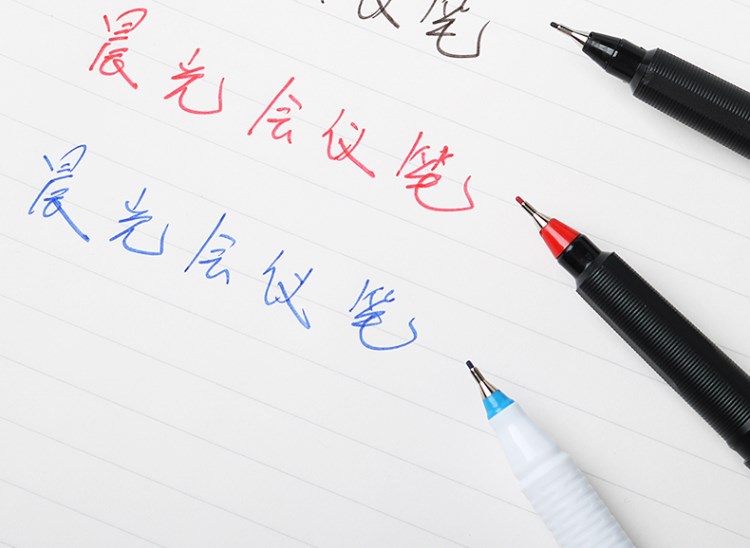 议笔
晨光会议笔
晨光会议笔